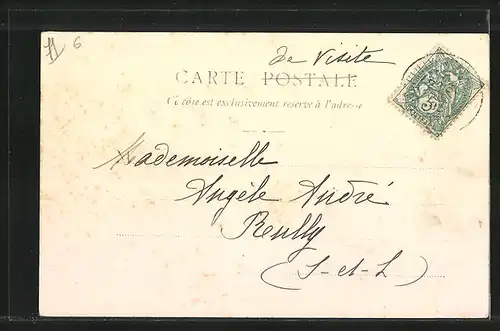 6
de Visite
CARTE POSTALE
Ce côté est exclusivement réservé à l'adresse
Mademoiselle
Angèle André
Reully
(S-et-L)